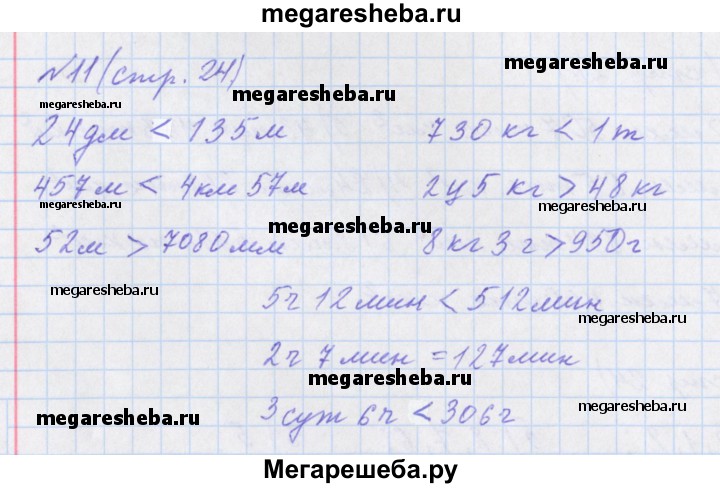 megaresheba.ru
№11 (стр. 24)
megaresheba.ru
megaresheba.ru
megaresheba.ru
24дм < 135м 730 кг < 1т
megaresheba.ru
457м < 4км 57м 2ц 5 кг > 48 кг
megaresheba.ru
megaresheba.ru
megaresheba.ru
52м > 7080мм 8 кг 3 г > 950г
megaresheba.ru
5ч 12 мин < 512мин
megaresheba.ru
2ч 7 мин = 127мин
megaresheba.ru
3 сут 6ч < 306ч
megaresheba.ru
megaresheba.ru
Мегарешеба.ру